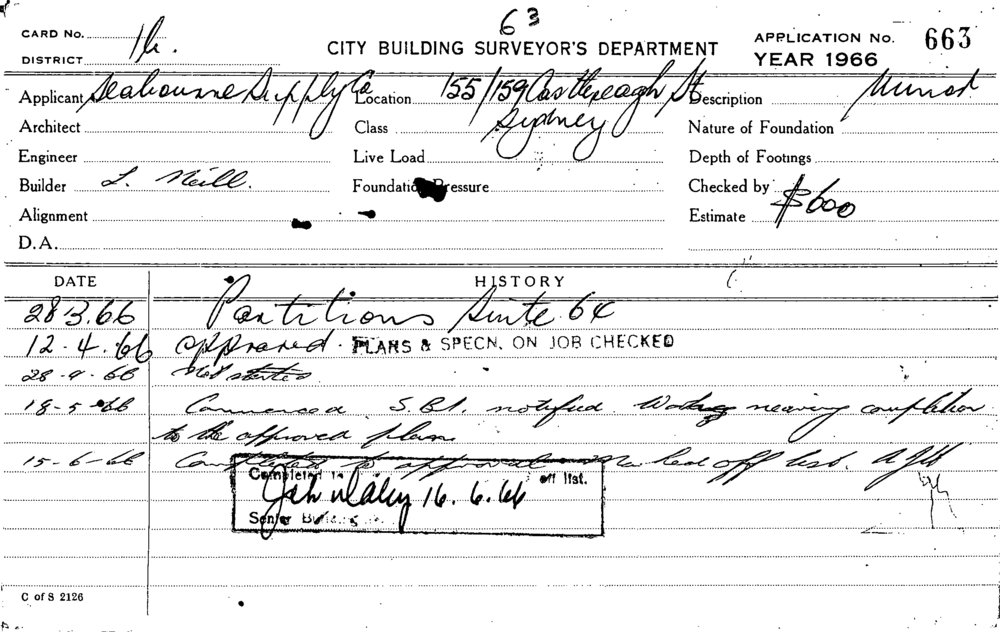 63
CARD No.
DISTRICT
CITY BUILDING SURVEYOR'S DEPARTMENT
APPLICATION No. 663
YEAR 1966
Applicant Seabourne Supply Co Location 155/159 Castlereagh St Description Minor.
Architect Class Sydney Nature of Foundation
Engineer Live Load Depth of Footings
Builder L. Neill. Foundation Pressure Checked by
Alignment Estimate $600
D.A.
DATE HISTORY
28.3.66 Partitions Suite 64
12.4.66 approved. PLANS & SPECN. ON JOB CHECKED
Not started.
18-5-66 Commenced S.B.I. notified. Work nearing completion
to the approved plan
15-6-66 Completed to approval Marked off list.
Completed off list.
16.6.66
Senior Building
C of S 2126